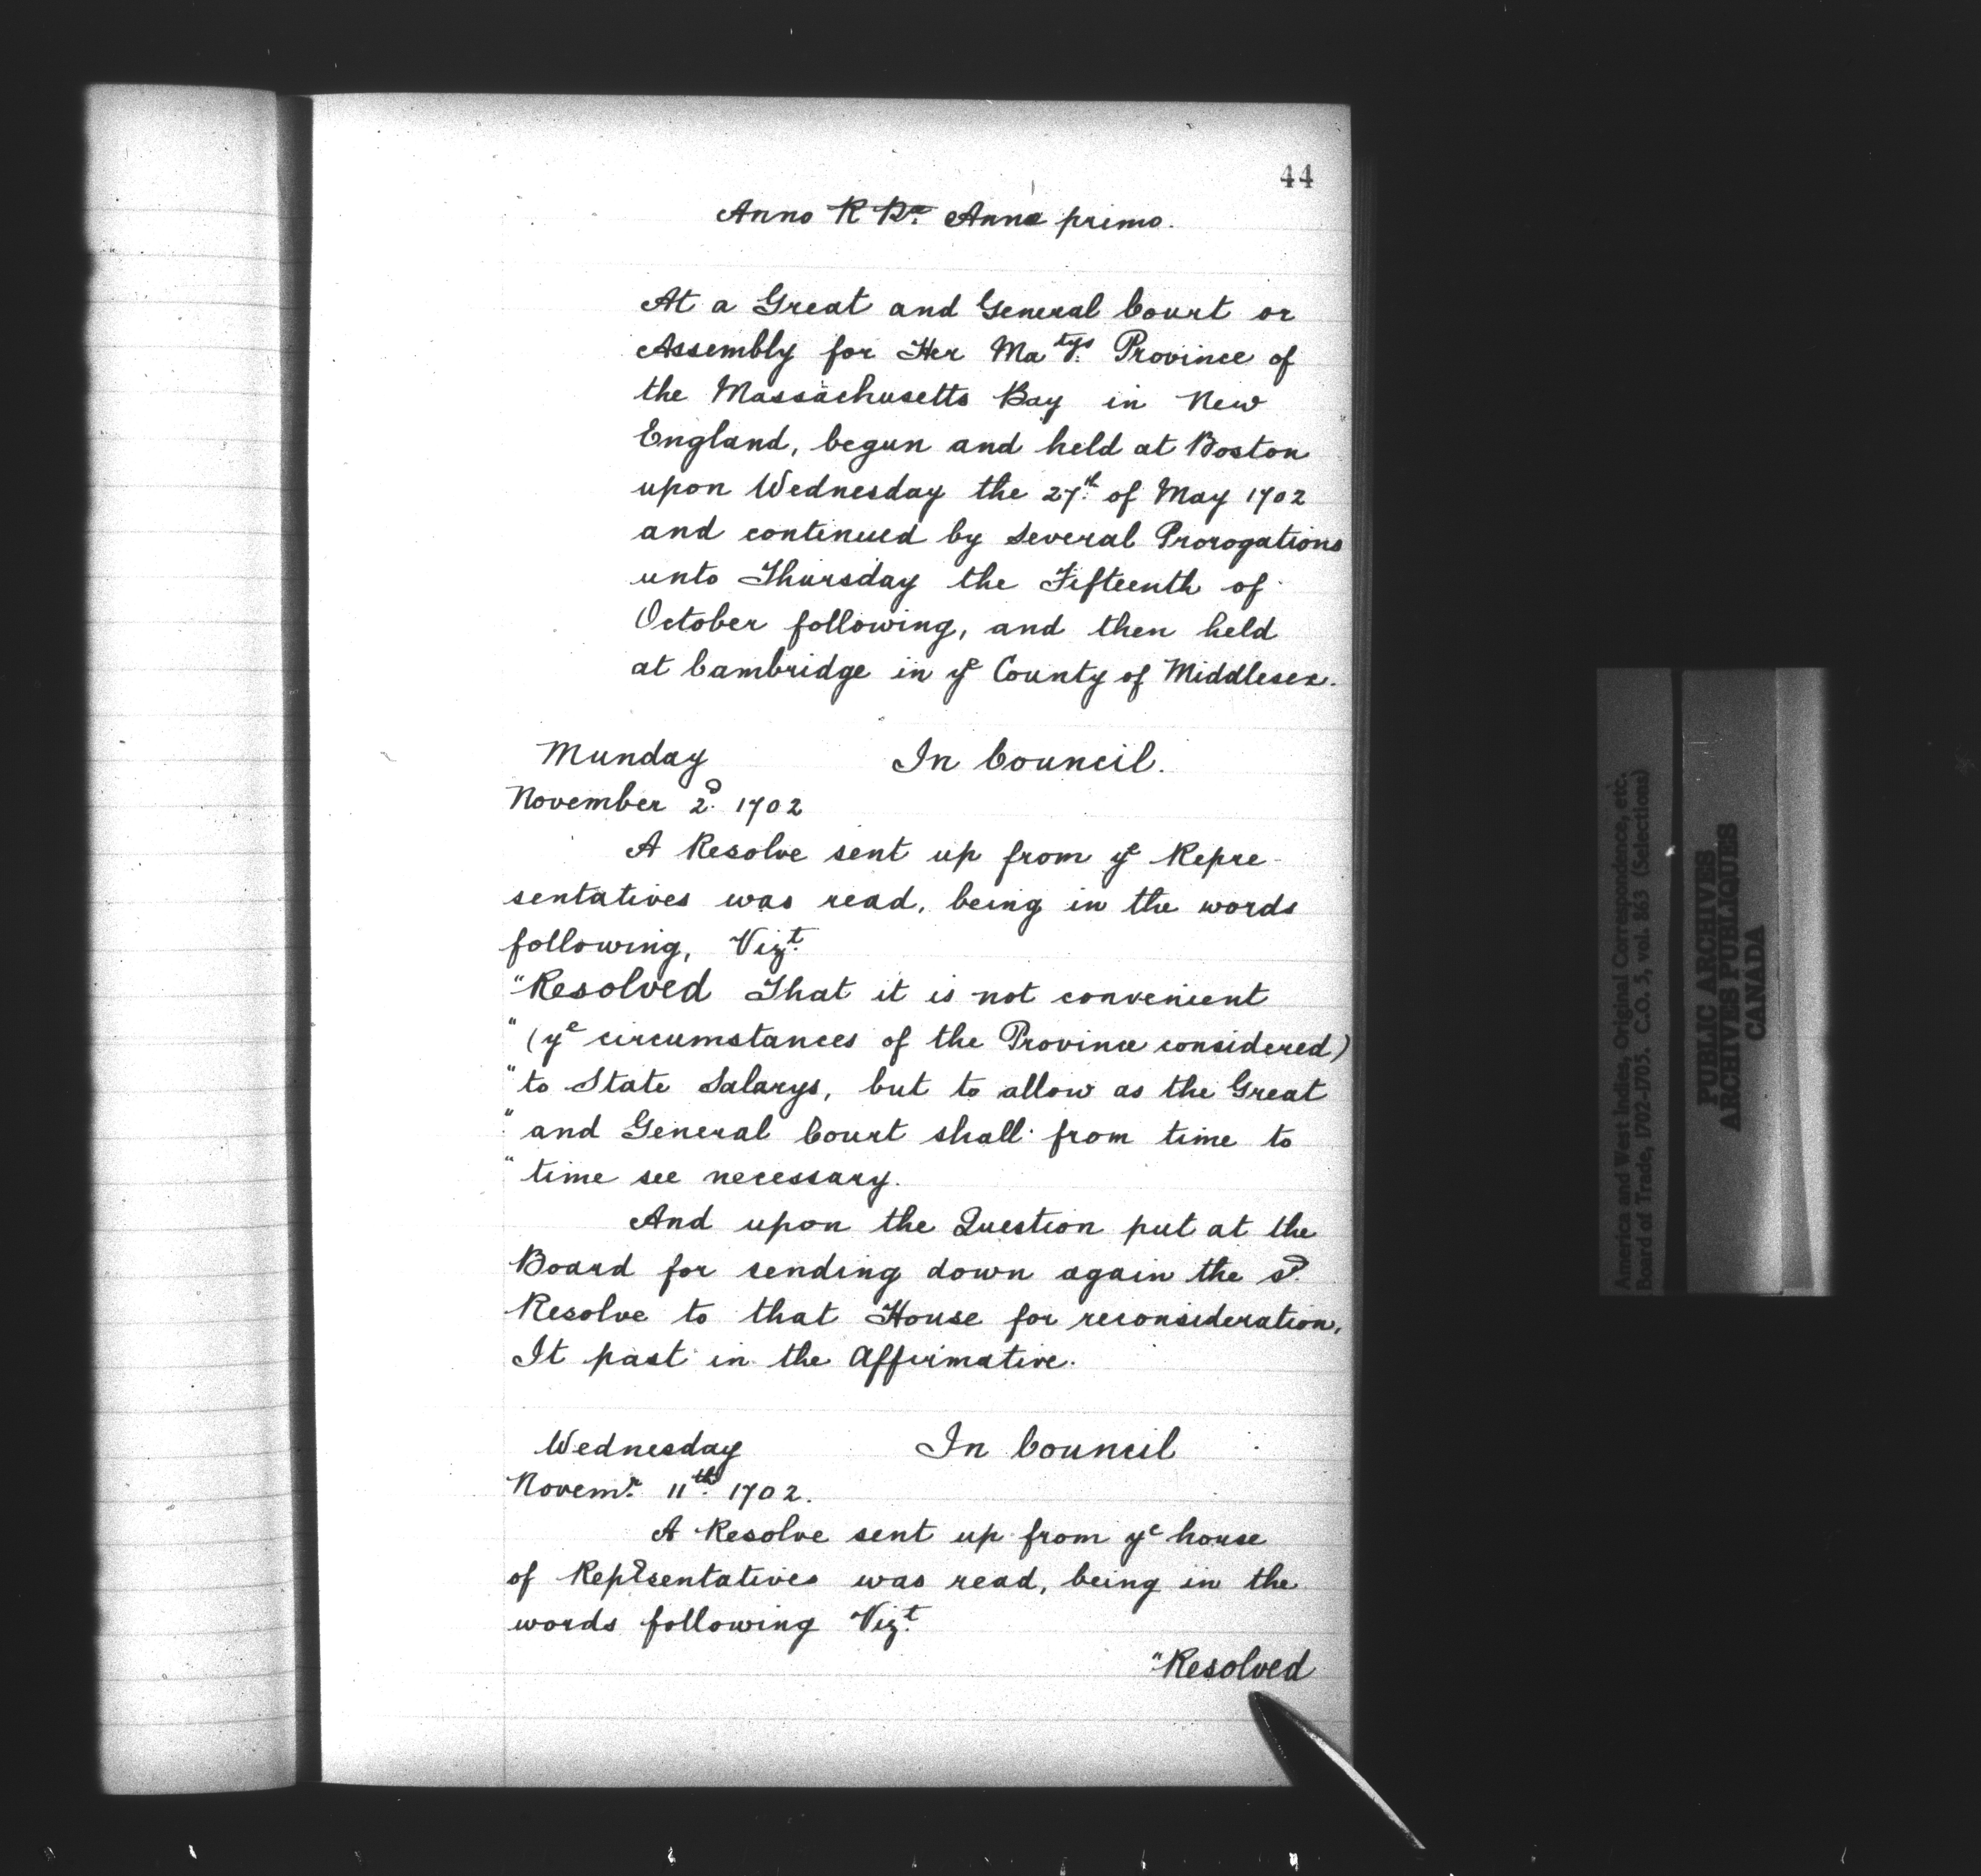 44
Anno R Rae. Annæ primo.
At a Great and General Court or
Assembly for Her Matys. Province of
the Massachusetts Bay in New
England, begun and held at Boston
upon Wednesday the 27th. of May 1702
and continued by several Prorogations
unto Thursday the Fifteenth of
October following, and then held
at Cambridge in ye County of Middlesex.
Munday In Council.
November 2d. 1702
A Resolve sent up from ye Repre-
sentatives was read, being in the words
following, Vizt.
"Resolved That it is not convenient
"(ye circumstances of the Province considered)
"to State Salarys, but to allow as the Great
"and General Court shall from time to
"time see necessary.
And upon the Question put at the
Board for sending down again the sd.
Resolve to that House for reconsideration,
It past in the Affirmative.
Wednesday In Council
Novemr. 11th. 1702.
A Resolve sent up from ye house
of Representatives was read, being in the
words following Vizt.
"Resolved
America and West Indies, Original Correspondence, etc.
Board of Trade, 1702-1703. C.O. 5, vol. 863 (Selections)
PUBLIC ARCHIVES
ARCHIVES PUBLIQUES
CANADA